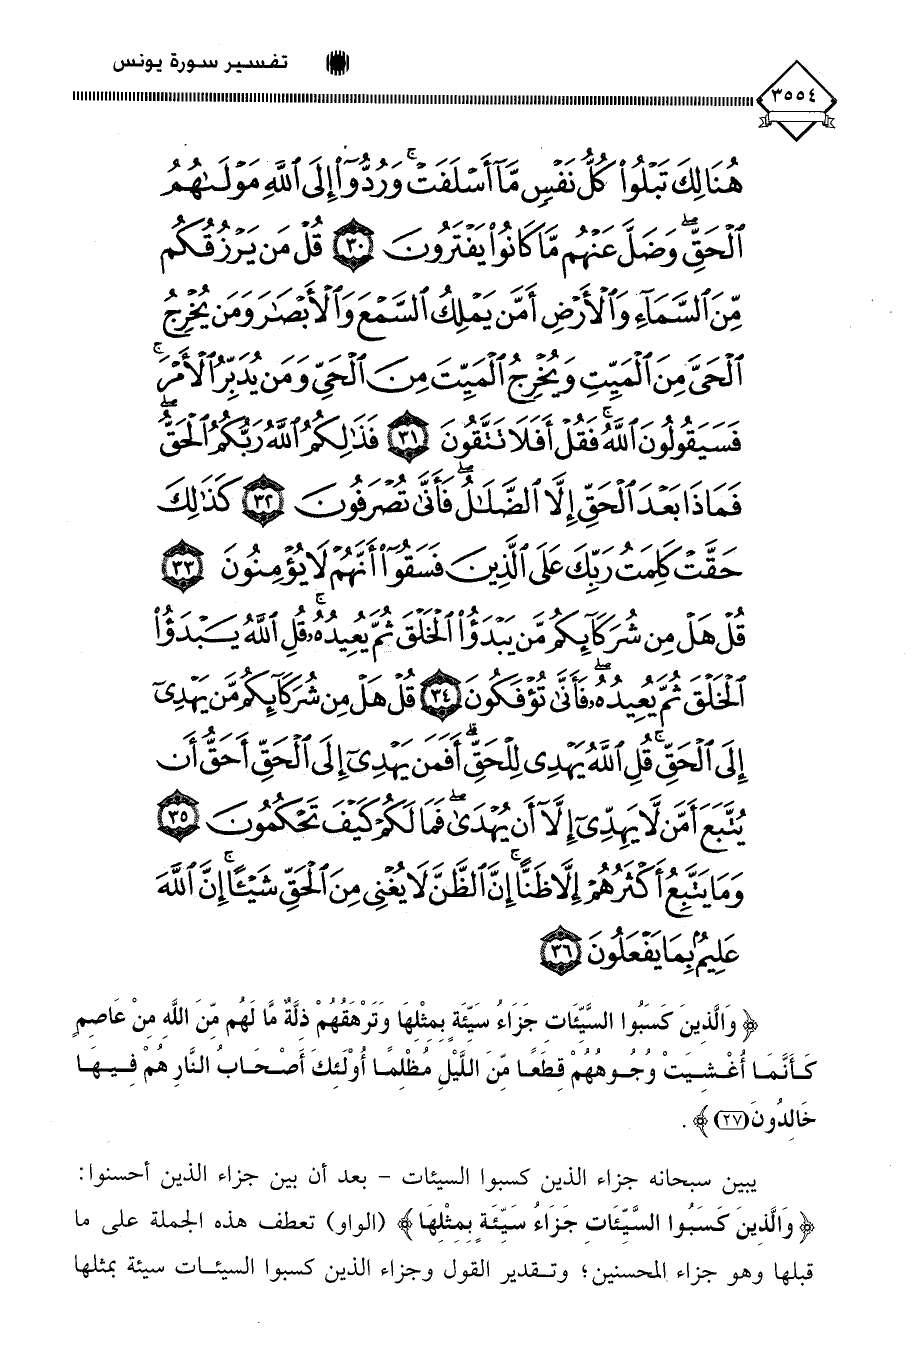 تفسير سورة يونس
٣٥٥٤
هُنَالِكَ تَبْلُوا۟ كُلُّ نَفْسٍ مَّآ أَسْلَفَتْ ۚ وَرُدُّوٓا۟ إِلَى ٱللَّهِ مَوْلَىٰهُمُ
ٱلْحَقِّ ۖ وَضَلَّ عَنْهُم مَّا كَانُوا۟ يَفْتَرُونَ ٣٠ قُلْ مَن يَرْزُقُكُم
مِّنَ ٱلسَّمَآءِ وَٱلْأَرْضِ أَمَّن يَمْلِكُ ٱلسَّمْعَ وَٱلْأَبْصَٰرَ وَمَن يُخْرِجُ
ٱلْحَىَّ مِنَ ٱلْمَيِّتِ وَيُخْرِجُ ٱلْمَيِّتَ مِنَ ٱلْحَىِّ وَمَن يُدَبِّرُ ٱلْأَمْرَ ۚ
فَسَيَقُولُونَ ٱللَّهُ ۚ فَقُلْ أَفَلَا تَتَّقُونَ ٣١ فَذَٰلِكُمُ ٱللَّهُ رَبُّكُمُ ٱلْحَقُّ ۖ
فَمَاذَا بَعْدَ ٱلْحَقِّ إِلَّا ٱلضَّلَٰلُ ۖ فَأَنَّىٰ تُصْرَفُونَ ٣٢ كَذَٰلِكَ
حَقَّتْ كَلِمَتُ رَبِّكَ عَلَى ٱلَّذِينَ فَسَقُوٓا۟ أَنَّهُمْ لَا يُؤْمِنُونَ ٣٣
قُلْ هَلْ مِن شُرَكَآئِكُم مَّن يَبْدَؤُا۟ ٱلْخَلْقَ ثُمَّ يُعِيدُهُۥ ۚ قُلِ ٱللَّهُ يَبْدَؤُا۟
ٱلْخَلْقَ ثُمَّ يُعِيدُهُۥ ۖ فَأَنَّىٰ تُؤْفَكُونَ ٣٤ قُلْ هَلْ مِن شُرَكَآئِكُم مَّن يَهْدِىٓ
إِلَى ٱلْحَقِّ ۚ قُلِ ٱللَّهُ يَهْدِى لِلْحَقِّ ۗ أَفَمَن يَهْدِىٓ إِلَى ٱلْحَقِّ أَحَقُّ أَن
يُتَّبَعَ أَمَّن لَّا يَهِدِّىٓ إِلَّآ أَن يُهْدَىٰ ۖ فَمَا لَكُمْ كَيْفَ تَحْكُمُونَ ٣٥
وَمَا يَتَّبِعُ أَكْثَرُهُمْ إِلَّا ظَنًّا ۚ إِنَّ ٱلظَّنَّ لَا يُغْنِى مِنَ ٱلْحَقِّ شَيْـًٔا ۚ إِنَّ ٱللَّهَ
عَلِيمٌۢ بِمَا يَفْعَلُونَ ٣٦
﴿وَالَّذِينَ كَسَبُوا السَّيِّئَاتِ جَزَاءُ سَيِّئَةٍ بِمِثْلِهَا وَتَرْهَقُهُمْ ذِلَّةٌ مَّا لَهُم مِّنَ اللَّهِ مِنْ عَاصِمٍ
كَأَنَّمَا أُغْشِيَتْ وُجُوهُهُمْ قِطَعًا مِّنَ اللَّيْلِ مُظْلِمًا أُوْلَئِكَ أَصْحَابُ النَّارِ هُمْ فِيهَا
خَالِدُونَ (٢٧)﴾.
يبين سبحانه جزاء الذين كسبوا السيئات – بعد أن بين جزاء الذين أحسنوا:
﴿وَالَّذِينَ كَسَبُوا السَّيِّئَاتِ جَزَاءُ سَيِّئَةٍ بِمِثْلِهَا﴾ (الواو) تعطف هذه الجملة على ما
قبلها وهو جزاء المحسنين؛ وتقدير القول وجزاء الذين كسبوا السيئات سيئة بمثلها